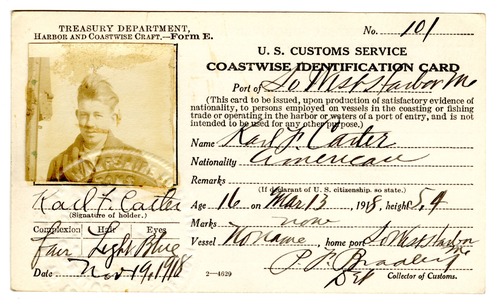 TREASURY DEPARTMENT,
HARBOR AND COASTWISE CRAFT.—FORM E.
No. 101
U. S. CUSTOMS SERVICE
COASTWISE IDENTIFICATION CARD
Port of So West Harbor Me
(This card to be issued, upon production of satisfactory evidence of
nationality, to persons employed on vessels in the coasting or fishing
trade or operating in the harbor or waters of a port of entry, and is not
intended to be used for any other purpose.)
Name Karl F. Carter
Nationality American
Remarks
(If declarant of U. S. citizenship, so state.)
Age 16 on Mar 13, 1918, height 5.4
Marks none
Vessel No name, home port So West Harbor Me
P. F. Bradley
Dep Collector of Customs.
Karl F Carter
(Signature of holder.)
Complexion Hair Eyes
Fair Light Blue
Date Nov 19, 1918
2—4629